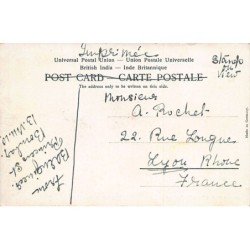 Imprimée
Stamp
on
View
Universal Postal Union - Union Postale Universelle
British India - Inde Britannique
POST CARD - CARTE POSTALE
The address only to be written this side.
Monsieur
A. Rochet
22 Rue Longue
Lyon Rhone
France
From
Princess St
Bombay
Made in Germany